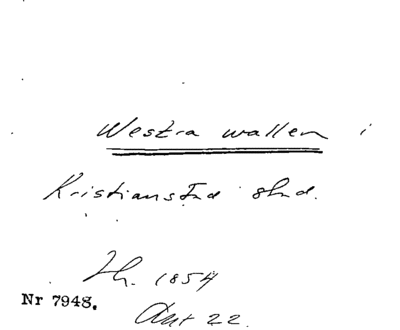 Westra wallen i
Kristianstad stad.
Th. 1854
Nr 7948.
Ant 22.